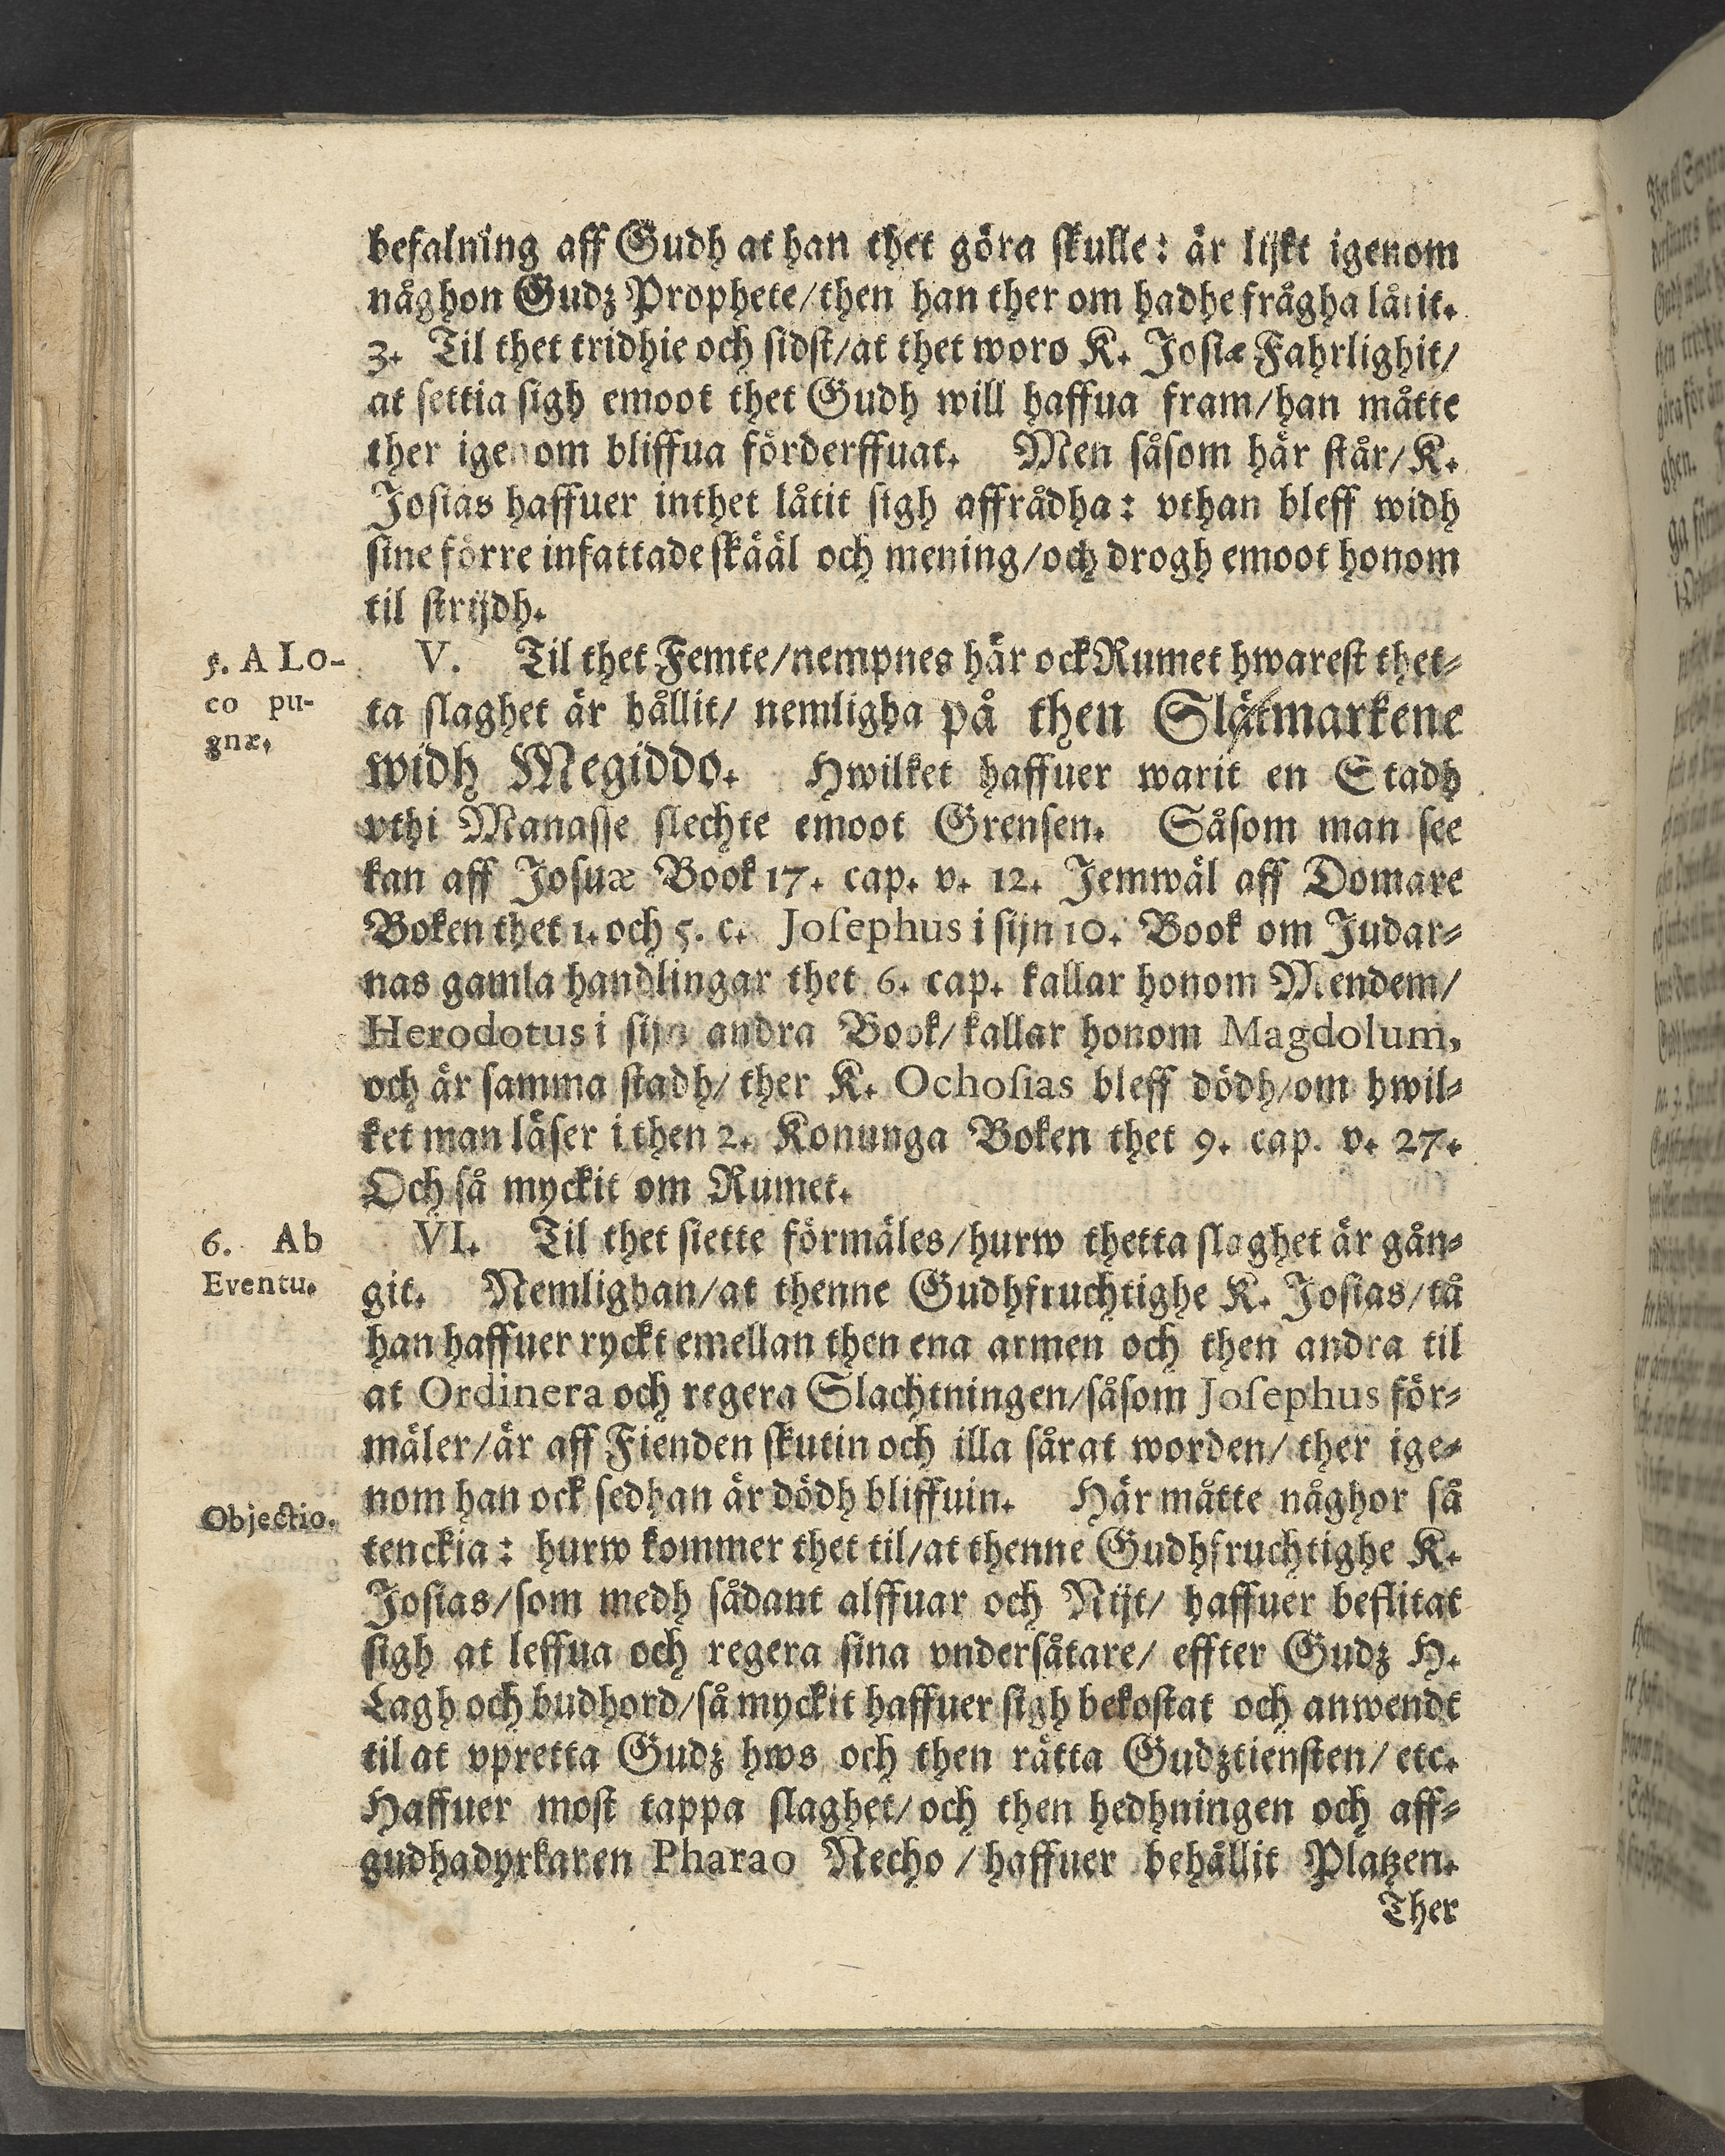 befalning aff Gudh at han thet göra skulle: är lijkt igenom
någhon Gudz Prophete/then han ther om hadhe frågha låtit.
3. Til thet tridhie och sidst/at thet woro K. Josiæ Fahrlighit/
at settia sigh emoot thet Gudh will haffua fram/han måtte
ther igenom bliffua förderffuat. Men såsom här står/K.
Josias haffuer inthet låtit sigh affrådha: vthan bleff widh
sine förre infattade skääl och mening/och drogh emoot honom
til strijdh.
5. A Lo-
co pu-
gnæ.
V. Til thet Femte/nempnes här ock Rumet hwarest thet-
ta slaghet är hållit/ nemligha på then Slätmarkene
widh Megiddo. Hwilket haffuer warit en Stadh
vthi Manasse slechte emoot Grensen. Såsom man see
kan aff Josuæ Book 17. cap. v. 12. Jemwäl aff Domare
Boken thet 1. och 5. c. Josephus i sijn 10. Book om Judar-
nas gamla handlingar thet 6. cap. kallar honom Mendem/
Herodotus i sijn andra Book/kallar honom Magdolum,
och är samma stadh/ ther K. Ochosias bleff dödh/om hwil-
ket man läser i then 2. Konunga Boken thet 9. cap. v. 27.
Och så myckit om Rumet.
6. Ab
Eventu.
VI. Til thet siette förmäles/hurw thetta slaghet är gån-
git. Nemlighan/at thenne Gudhfruchtighe K. Josias/tå
han haffuer ryckt emellan then ena armen och then andra til
at Ordinera och regera Slachtningen/såsom Josephus för-
mäler/är aff Fienden skutin och illa sårat worden/ ther ige-
nom han ock sedhan är dödh bliffuin. Här måtte någhor så
Objectio.
tenckia: hurw kommer thet til/at thenne Gudhfruchtighe K.
Josias/som medh sådant alffuar och Nijt/ haffuer beflitat
sigh at leffua och regera sina vndersåtare/ effter Gudz H.
Lagh och budhord/så myckit haffuer sigh bekostat och anwendt
til at vpretta Gudz hws och then rätta Gudztiensten/ etc.
Haffuer most tappa slaghet/och then hedhningen och aff-
gudhadyrkaren Pharao Necho / haffuer behållit Platzen.
Ther